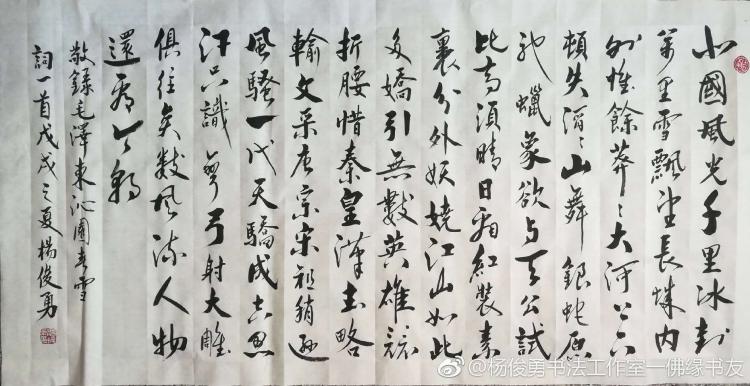 北國風光千里冰封
萬里雪飄望長城内
外惟餘莽〻大河上下
頓失滔〻山舞銀蛇原
馳蠟象欲与天公試
比高須晴日看紅裝素
裹分外妖嬈江山如此
多嬌引無數英雄競
折腰惜秦皇漢武略
輸文采唐宗宋祖稍遜
風騷一代天驕成吉思
汗只識彎弓射大雕
俱往矣數風流人物
還看今朝
敬錄毛澤東沁園春雪
詞一首戊戌之夏楊俊勇
@杨俊勇书法工作室一佛缘书友